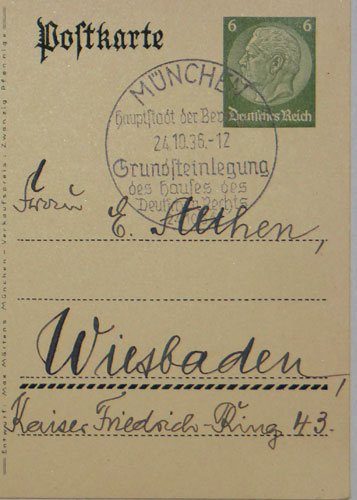 Postkarte
6 6
Deutsches Reich
MÜNCHEN
Hauptstadt der Bew
24.10.36.-12
Grundsteinlegung
des Hauses des
Deutschen Rechts
Frau E. Althen,
Wiesbaden,
Kaiser Friedrich-Ring 43.
Entwurf: Max Märtens München - Verkaufspreis: Zwanzig Pfennige